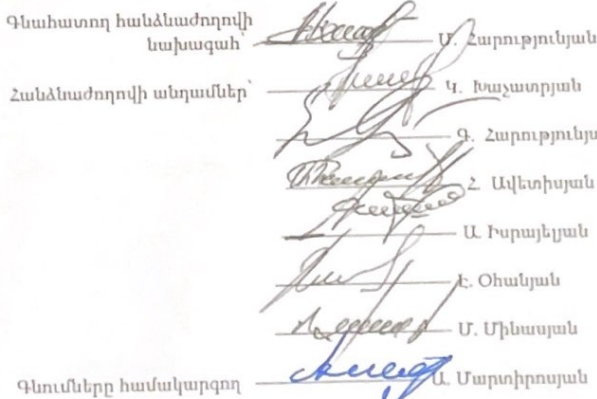 Գնահատող հանձնաժողովի
նախագահ՝ Մ. Հարությունյան
Հանձնաժողովի անդամներ՝ Կ. Խաչատրյան
Գ. Հարությունյա
Հ. Ավետիսյան
Ա. Իսրայելյան
Է. Օհանյան
Մ. Մինասյան
Գնումները համակարգող Ա. Մարտիրոսյան